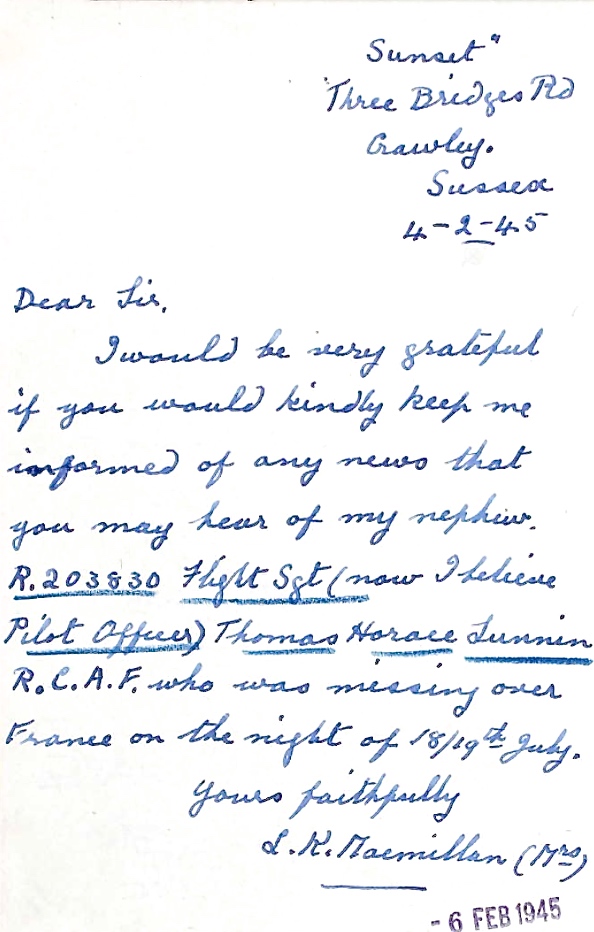 Sunset"
Three Bridges Rd
Crawley.
Sussex
4-2-45
Dear Sir,
I would be very grateful
if you would kindly keep me
informed of any news that
you may hear of my nephew.
R.203830 Flight Sgt (now I believe
Pilot Officer) Thomas Horace Lunnin
R.C.A.F. who was missing over
France on the night of 18/19th July.
Yours faithfully
L.K. Macmillan (Mrs)
- 6 FEB 1945